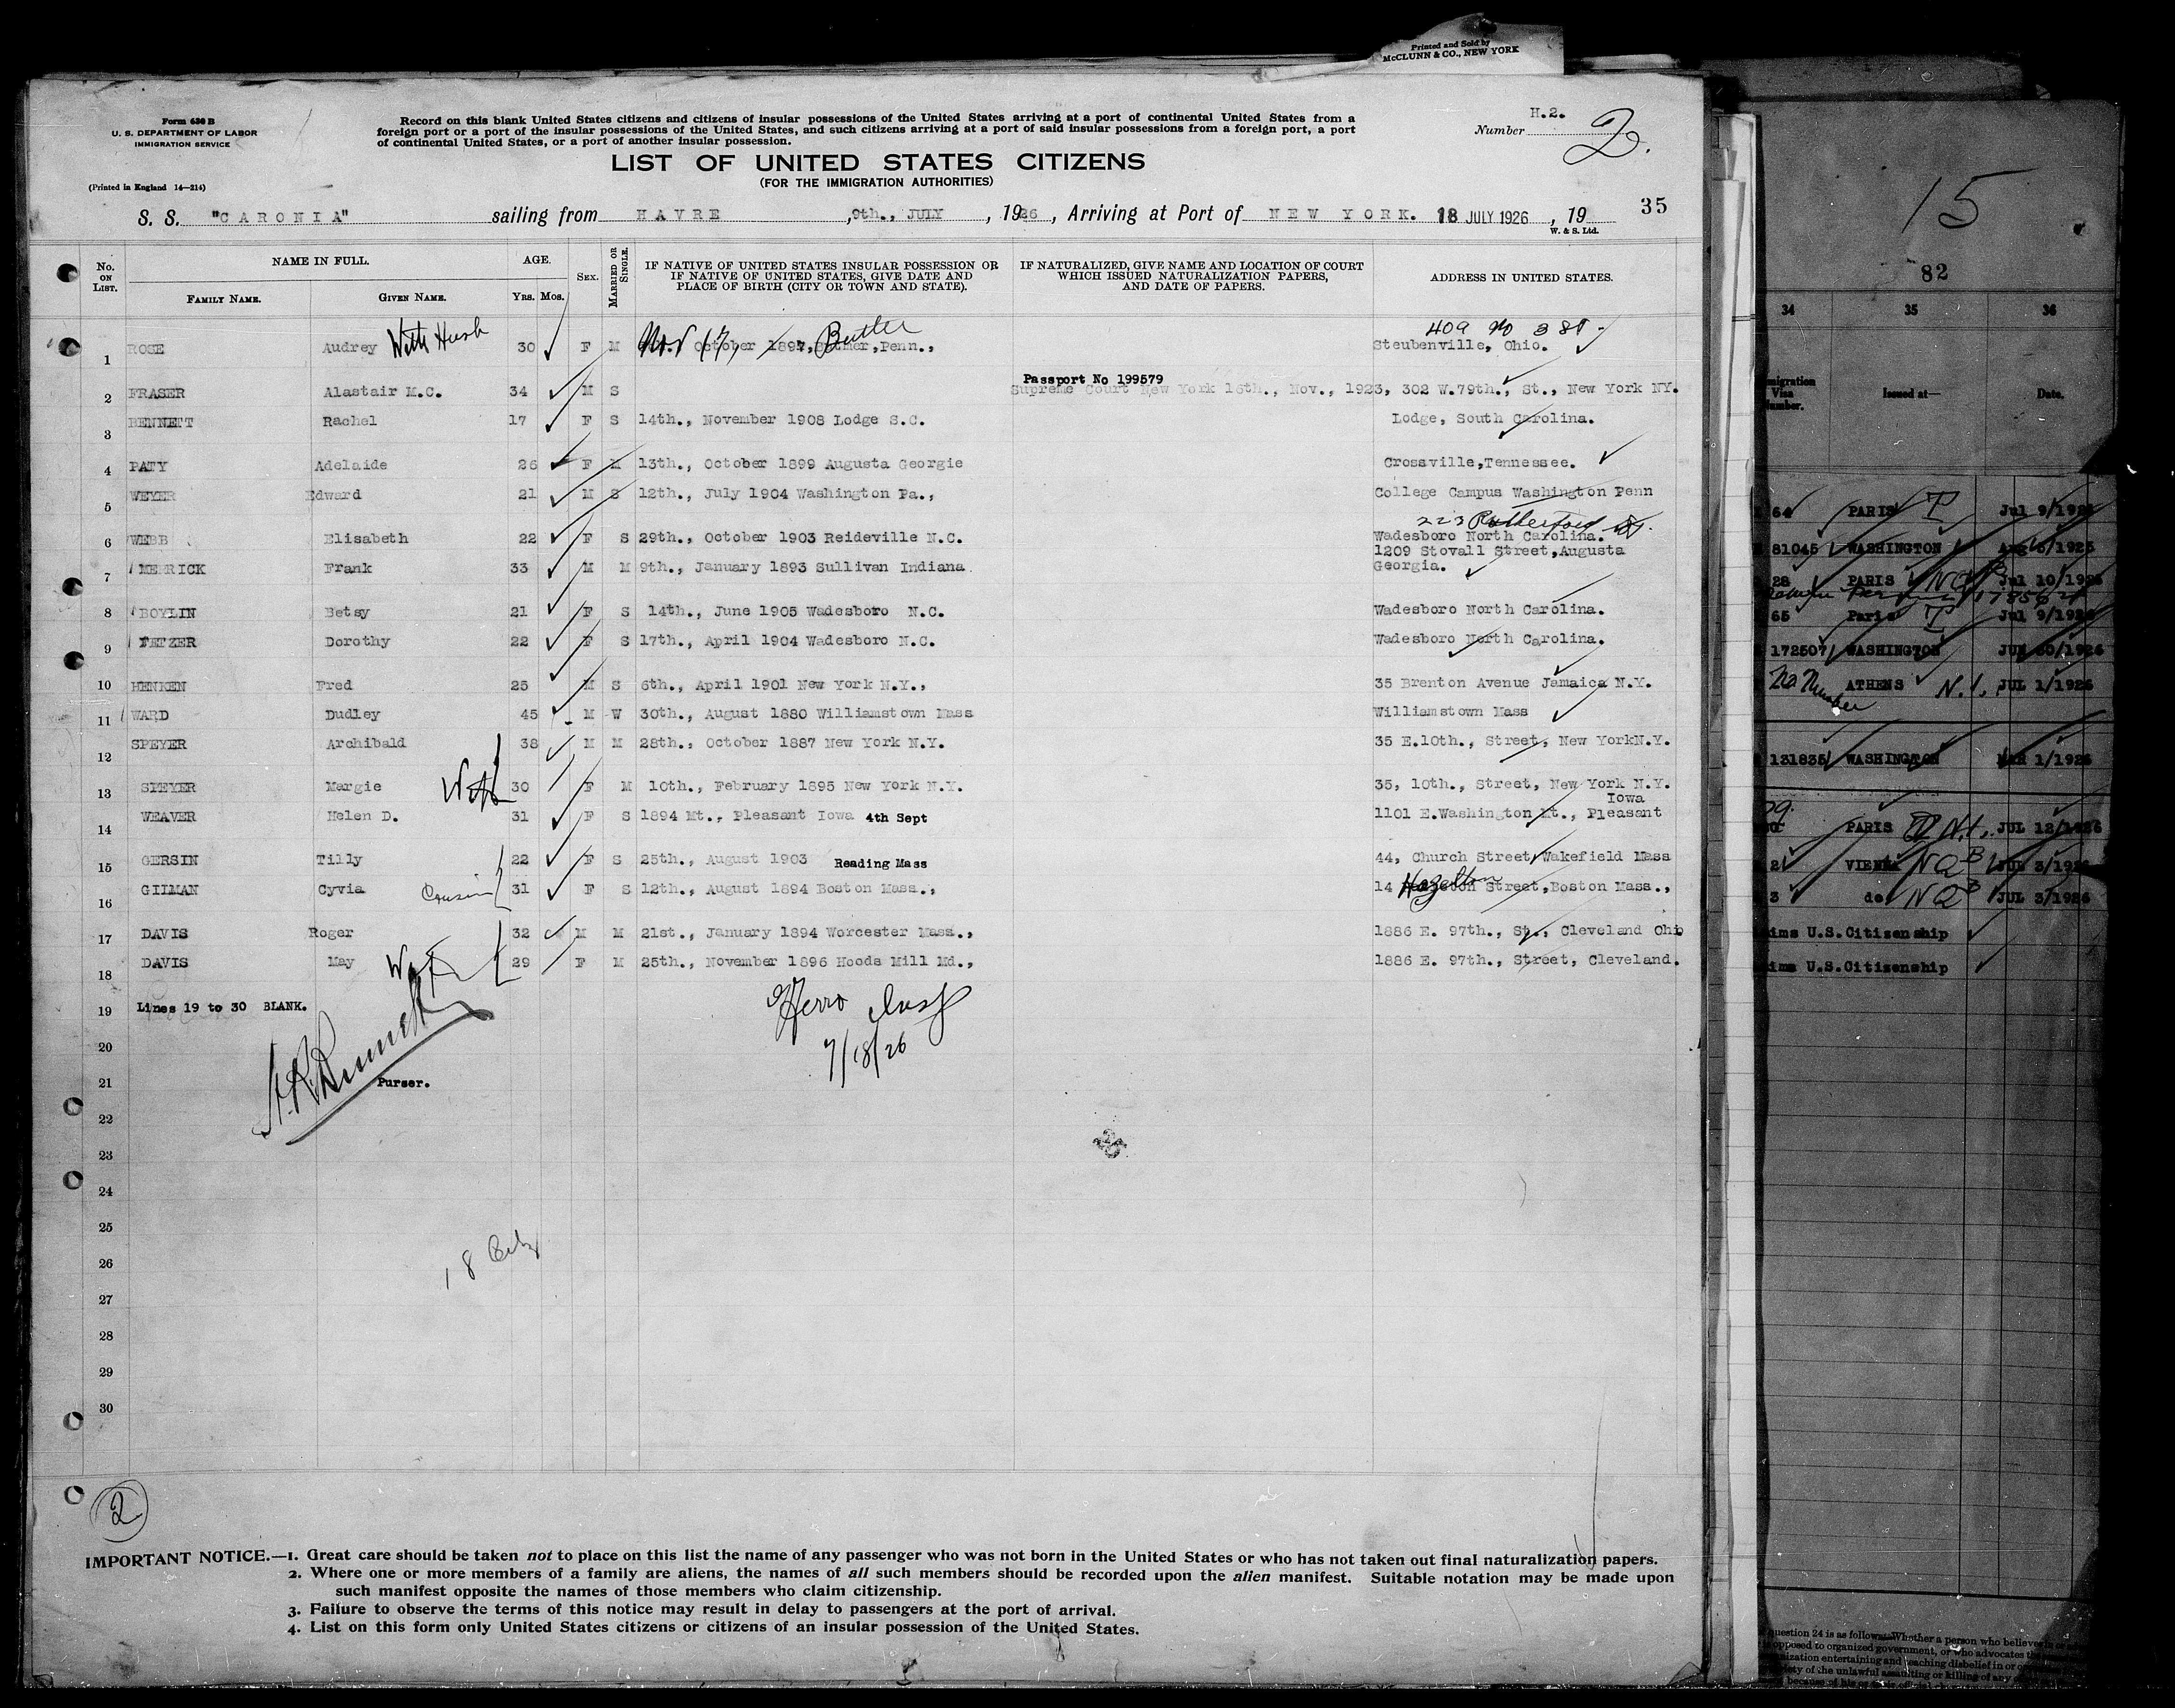 Printed and Sold by
McCLUNN & CO., NEW YORK
Form 630 B
U. S. DEPARTMENT OF LABOR
IMMIGRATION SERVICE
(Printed in England 14—214)
Record on this blank United States citizens and citizens of insular possessions of the United States arriving at a port of continental United States from a
foreign port or a port of the insular possessions of the United States, and such citizens arriving at a port of said insular possessions from a foreign port, a port
of continental United States, or a port of another insular possession.
H.2.
Number 2.
LIST OF UNITED STATES CITIZENS
(FOR THE IMMIGRATION AUTHORITIES)
S. S. "CARONIA" sailing from HAVRE, 9th., JULY, 1926, Arriving at Port of NEW YORK. 18 JULY 1926, 19 35
W. & S. Ltd.
No. ON LIST. NAME IN FULL. FAMILY NAME. GIVEN NAME. AGE. Yrs. Mos. SEX. MARRIED OR SINGLE. IF NATIVE OF UNITED STATES INSULAR POSSESSION OR IF NATIVE OF UNITED STATES, GIVE DATE AND PLACE OF BIRTH (CITY OR TOWN AND STATE). IF NATURALIZED, GIVE NAME AND LOCATION OF COURT WHICH ISSUED NATURALIZATION PAPERS, AND DATE OF PAPERS. ADDRESS IN UNITED STATES.
409 No 3 St -
1 ROSE Audrey With Husb 30 F M Nov 17, October 1897, Butler, Penn., Steubenville, Ohio.
Passport No 199579
2 FRASER Alastair M.C. 34 M S Supreme Court New York 16th., Nov., 1923, 302 W.79th., St., New York NY.
3 BENNETT Rachel 17 F S 14th., November 1908 Lodge S.C. Lodge, South Carolina.
4 PATY Adelaide 26 F M 13th., October 1899 Augusta Georgie Crossville,Tennessee.
5 WEYER Edward 21 M S 12th., July 1904 Washington Pa., College Campus Washington Penn
223 Rutherford St.
6 WEBB Elisabeth 22 F S 29th., October 1903 Reideville N.C. Wadesboro North Carolina.
1209 Stovall Street,Augusta
7 MERRICK Frank 33 M M 9th., January 1893 Sullivan Indiana Georgia.
8 BOYLIN Betsy 21 F S 14th., June 1905 Wadesboro N.C. Wadesboro North Carolina.
9 TETZER Dorothy 22 F S 17th., April 1904 Wadesboro N.C. Wadesboro North Carolina.
10 HENKEN Fred 25 M S 6th., April 1901 New York N.Y., 35 Brenton Avenue Jamaica N.Y.
11 WARD Dudley 45 M W 30th., August 1880 Williamstown Mass Williamstown Mass
12 SPEYER Archibald 38 M M 28th., October 1887 New York N.Y. 35 E.10th., Street, New YorkN.Y.
13 SPEYER Margie 30 F M 10th., February 1895 New York N.Y. 35, 10th., Street, New York N.Y.
Iowa
14 WEAVER Helen D. 31 F S 1894 Mt., Pleasant Iowa 4th Sept 1101 E.Washington Mt., Pleasant
15 GERSIN Tilly 22 F S 25th., August 1903 Reading Mass 44, Church Street Wakefield Mass
16 GILMAN Cyvia Cousin 31 F S 12th., August 1894 Boston Mass., 14 Hazelton Street,Boston Mass.,
17 DAVIS Roger 32 M M 21st., January 1894 Worcester Mass., 1886 E. 97th., St., Cleveland Ohio
18 DAVIS May 29 F M 25th., November 1896 Hoods Mill Md., 1886 E. 97th., Street, Cleveland.
19 Lines 19 to 30 BLANK.
20
7/18/26
21 Purser.
22
23
24
25
26
27
28
29
30
2
IMPORTANT NOTICE.—1. Great care should be taken not to place on this list the name of any passenger who was not born in the United States or who has not taken out final naturalization papers.
2. Where one or more members of a family are aliens, the names of all such members should be recorded upon the alien manifest. Suitable notation may be made upon
such manifest opposite the names of those members who claim citizenship.
3. Failure to observe the terms of this notice may result in delay to passengers at the port of arrival.
4. List on this form only United States citizens or citizens of an insular possession of the United States.
15
82
34 35 36
Visa Issued at— Date.
64 PARIS T Jul 9/1926
81045 WASHINGTON Aug 5/1925
28 PARIS NQB Jul 10/1926
65 Paris T Jul 9/1926
172507 WASHINGTON JUN 30/1926
No Number ATHENS N.I. JUL 1/1926
131835 WASHINGTON MAR 1/1926
PARIS N.I. JUL 12/1926
2 VIENNA NQB JUL 3/1926
3 do NQB JUL 3/1926
U.S.Citizenship
U.S.Citizenship
question 24 is as follows: Whether a person who believes in
opposed to organized government, or who advocates
entertaining and teaching disbelief in or
of the unlawful assaulting or killing of any